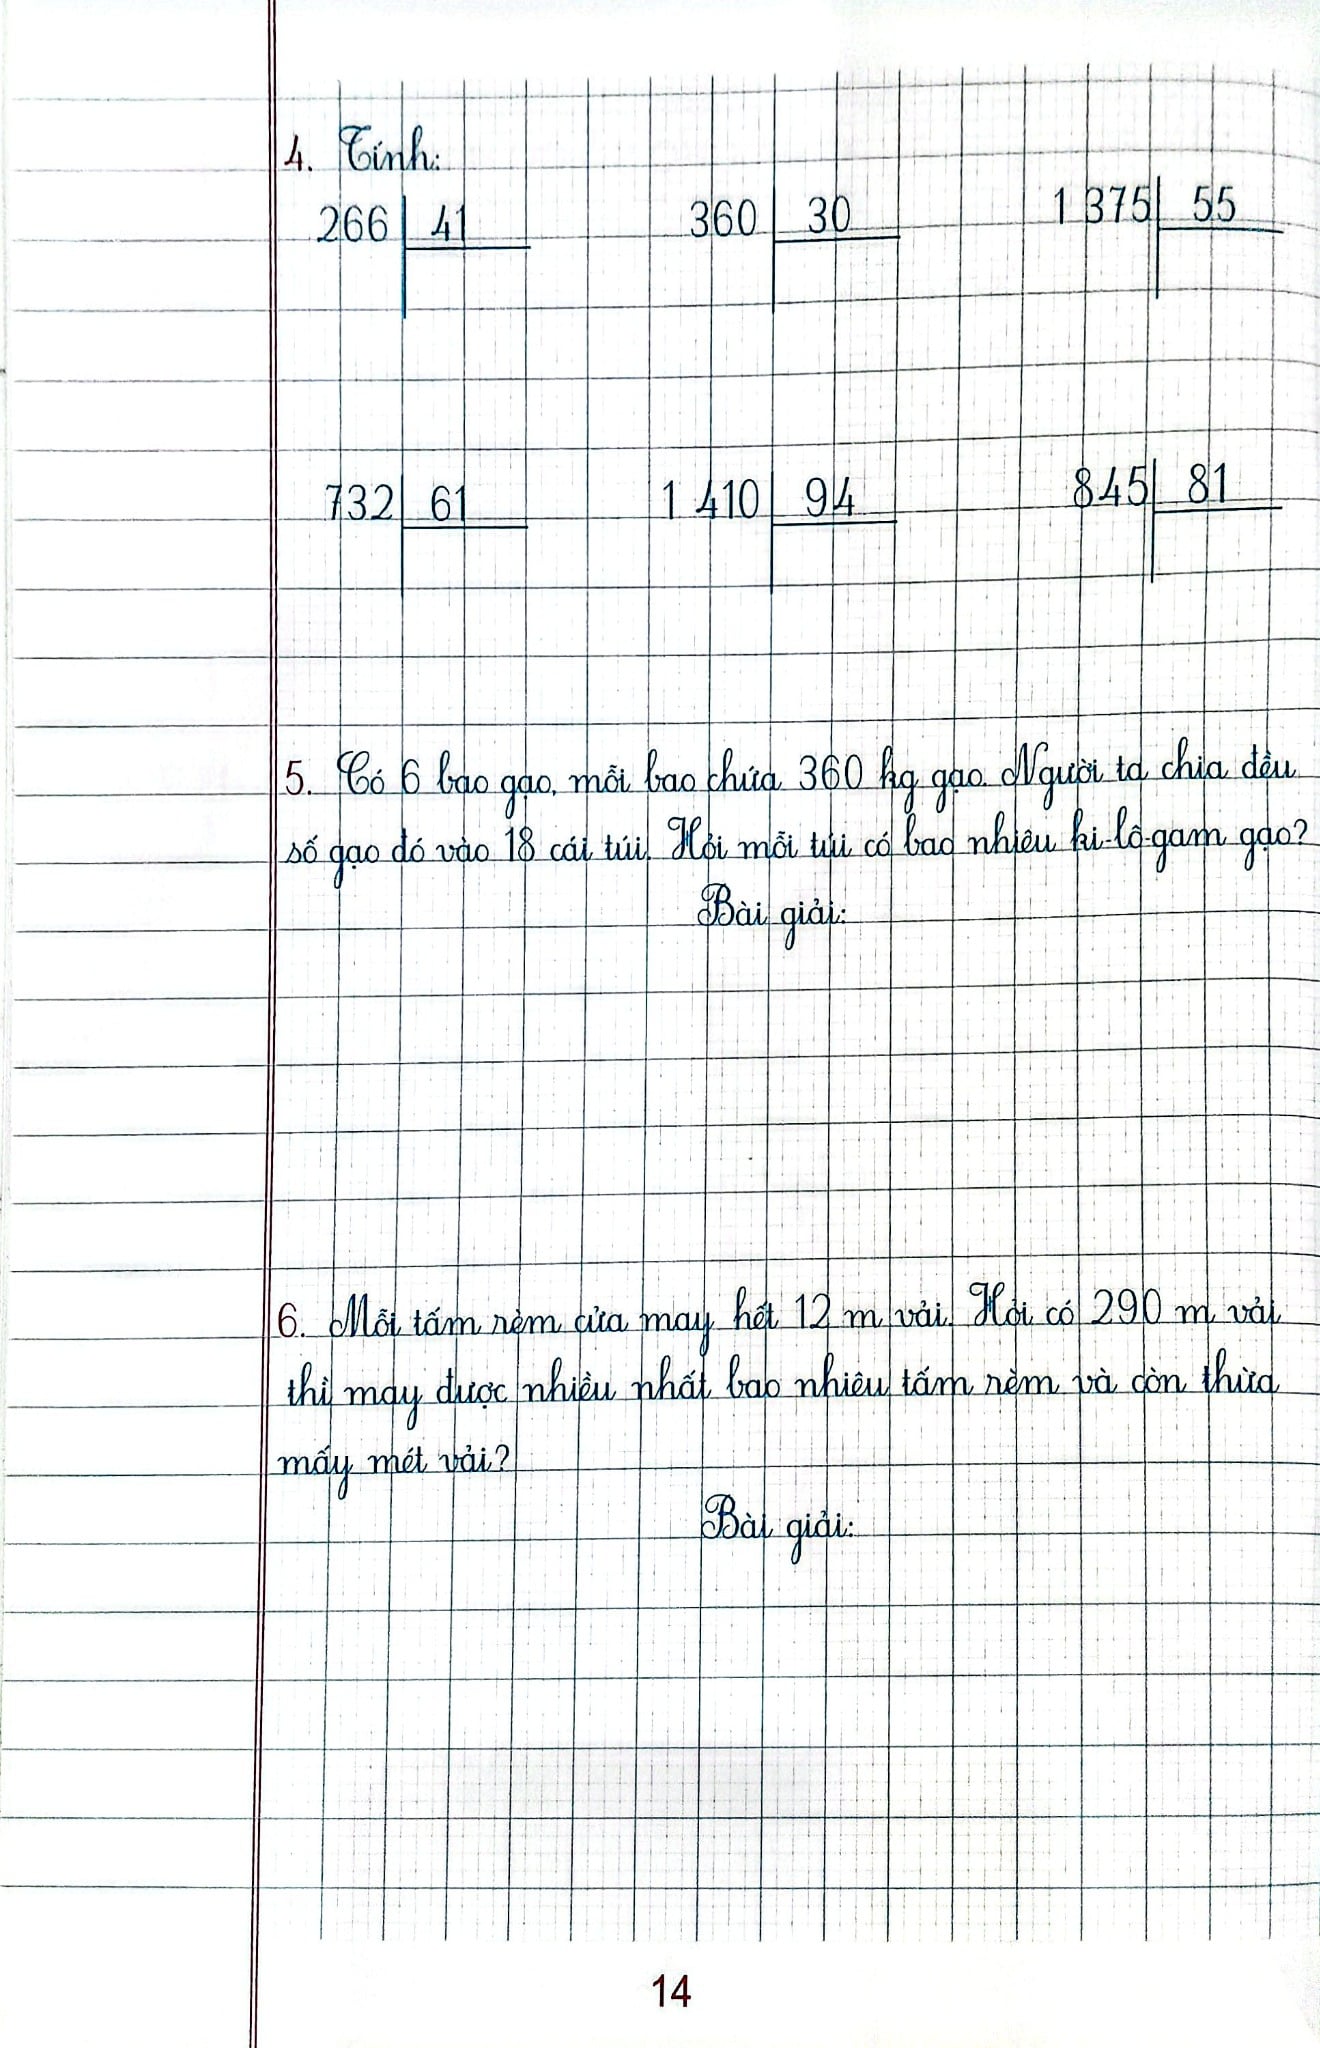 4. Tính:
266 41 360 30 1 375 55
732 61 1 410 94 845 81
5. Có 6 bao gạo, mỗi bao chứa 360 kg gạo. Người ta chia đều
số gạo đó vào 18 cái túi. Hỏi mỗi túi có bao nhiêu ki-lô-gam gạo?
Bài giải:
6. Mỗi tấm rèm cửa may hết 12 m vải. Hỏi có 290 m vải
thì may được nhiều nhất bao nhiêu tấm rèm và còn thừa
mấy mét vải?
Bài giải:
14